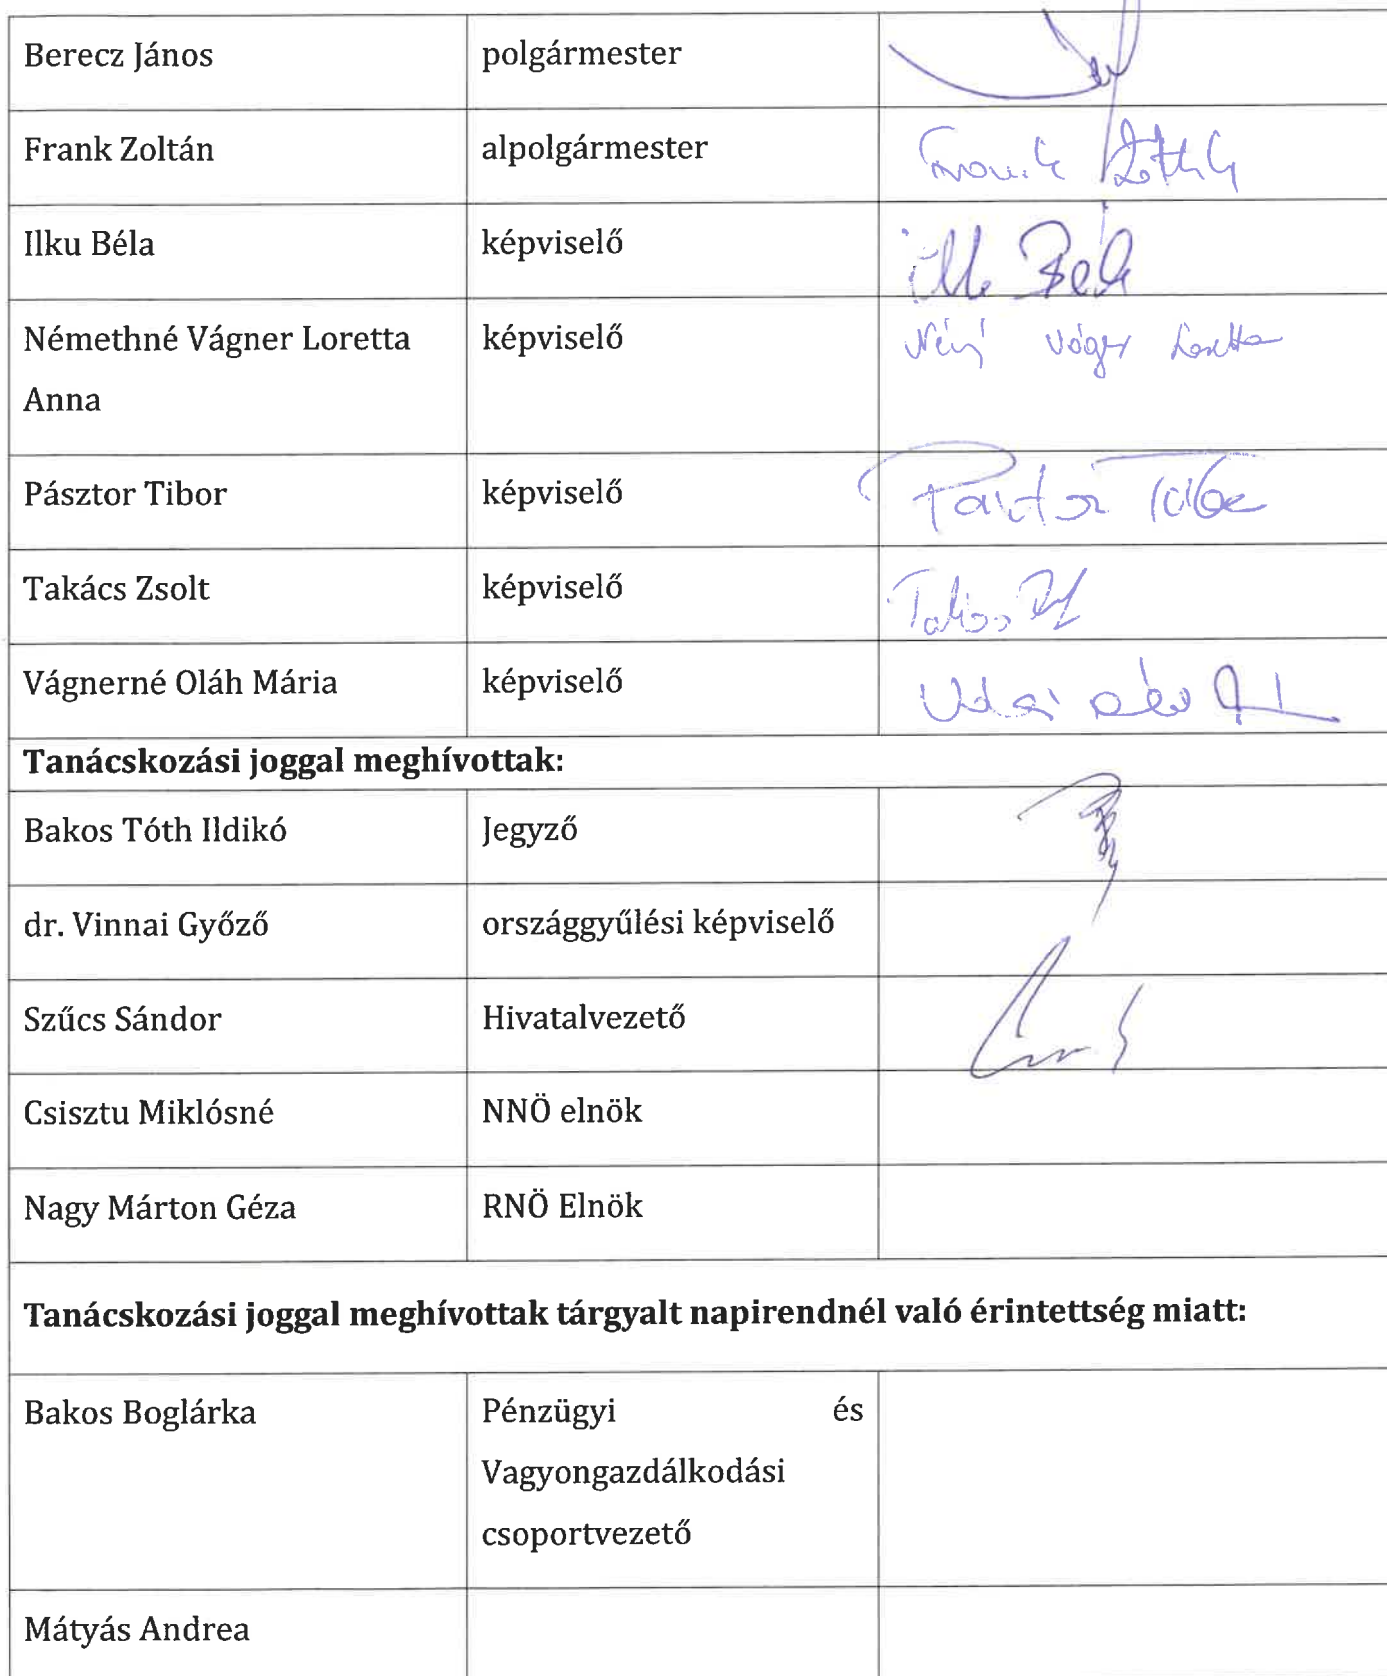 Berecz János polgármester
Frank Zoltán alpolgármester
Ilku Béla képviselő
Némethné Vágner Loretta képviselő
Anna
Pásztor Tibor képviselő
Takács Zsolt képviselő
Vágnerné Oláh Mária képviselő
Tanácskozási joggal meghívottak:
Bakos Tóth Ildikó Jegyző
dr. Vinnai Győző országgyűlési képviselő
Szűcs Sándor Hivatalvezető
Csisztu Miklósné NNÖ elnök
Nagy Márton Géza RNÖ Elnök
Tanácskozási joggal meghívottak tárgyalt napirendnél való érintettség miatt:
Bakos Boglárka Pénzügyi és
Vagyongazdálkodási
csoportvezető
Mátyás Andrea